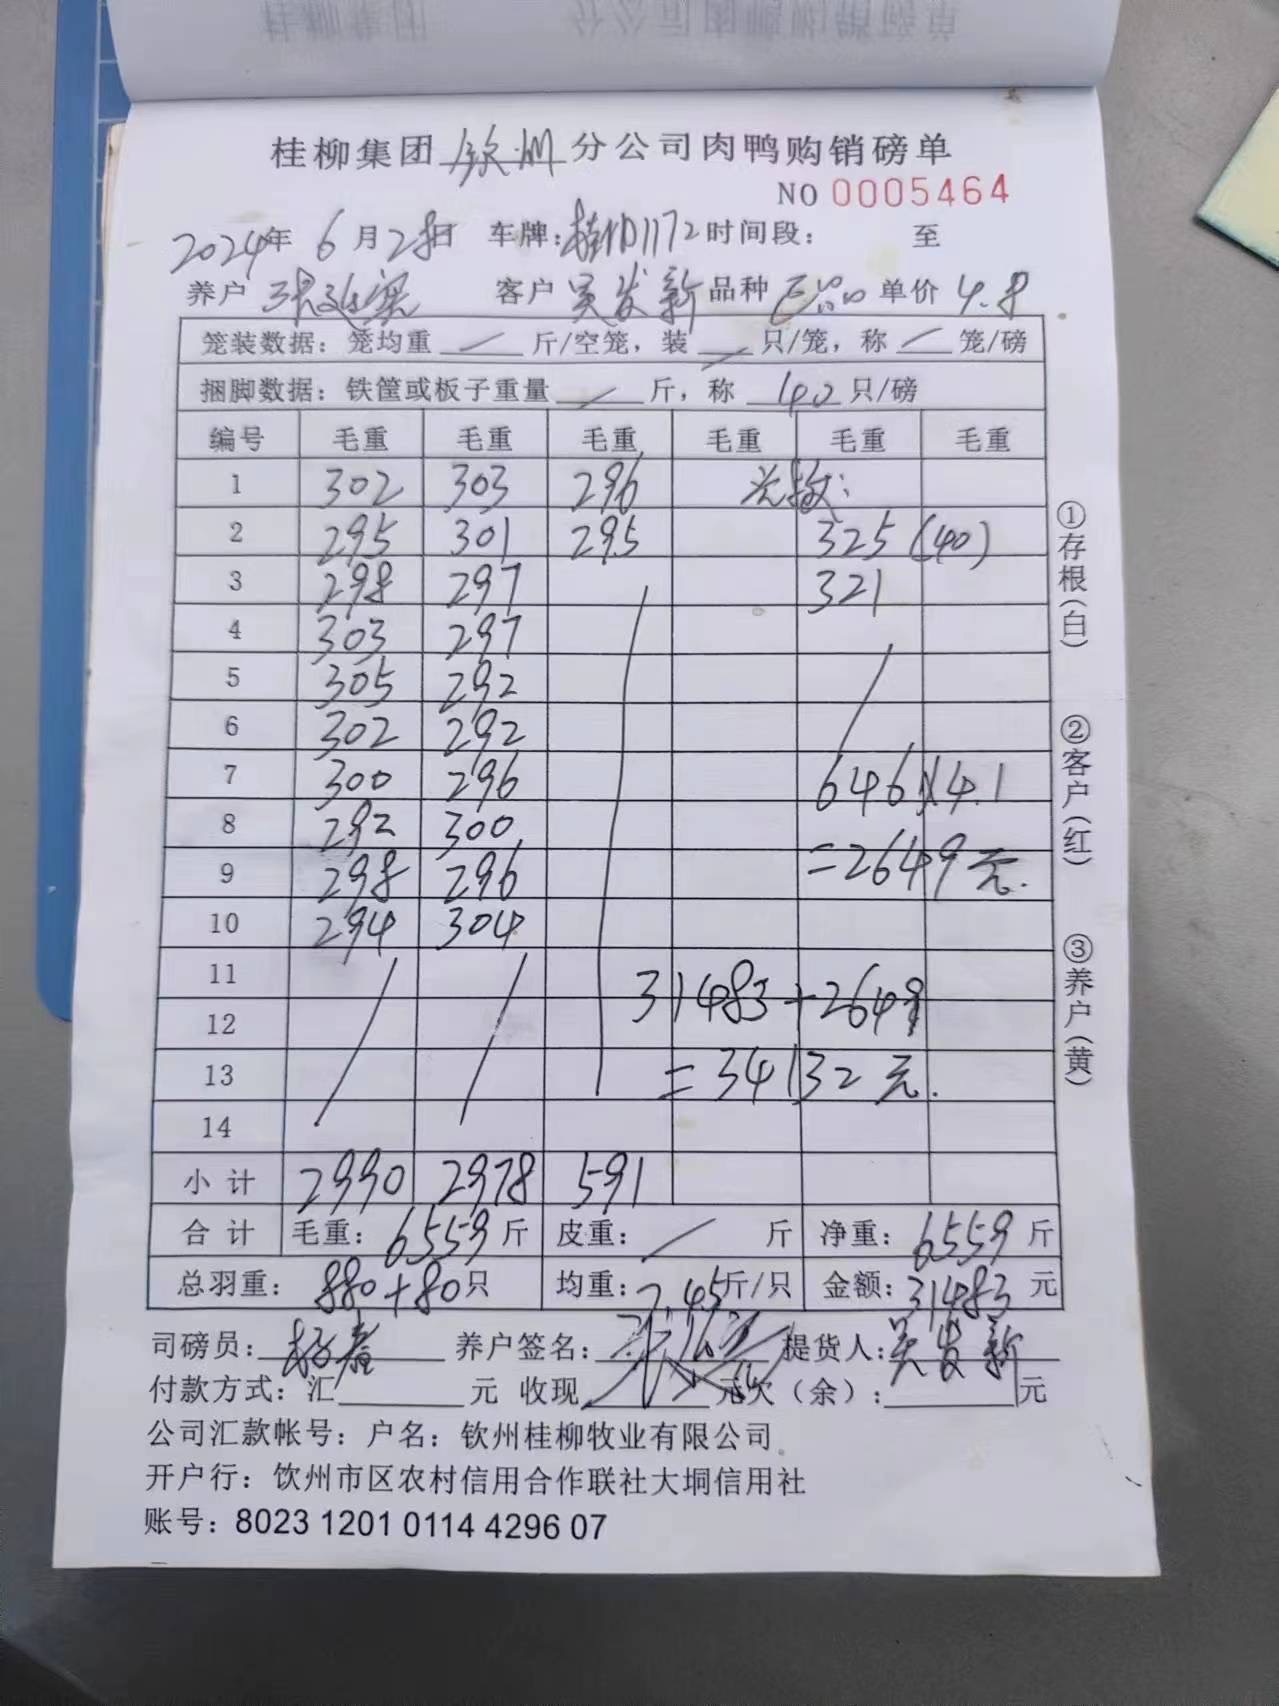 桂柳集团钦州分公司肉鸭购销磅单
NO 0005464
2024年6月28日 车牌: 1172 时间段: 至
养户 客户 吴发新 品种 单价 4.8
笼装数据: 笼均重 / 斤/空笼, 装 / 只/笼, 称 / 笼/磅
捆脚数据: 铁筐或板子重量 / 斤, 称 40 只/磅
编号 毛重 毛重 毛重 毛重 毛重 毛重
1 302 303 296
2 295 301 295 325 (40)
3 298 297 321
4 303 297
5 305 292
6 302 292
7 300 296 646×4.1
8 292 300
9 298 296 =2649元.
10 294 304
11 31483+2649
12
13 =34132元.
14
小计 2990 2978 591
合计 毛重: 6559 斤 皮重: / 斤 净重: 6559 斤
总羽重: 880+80 只 均重: 7.45 斤/只 金额: 31483 元
司磅员: 养户签名: 提货人: 吴发新
付款方式: 汇 元 收现 元 欠(余): 元
公司汇款帐号: 户名: 钦州桂柳牧业有限公司
开户行: 饮州市区农村信用合作联社大垌信用社
账号: 8023 1201 0114 4296 07
①存根(白)
②客户(红)
③养户(黄)